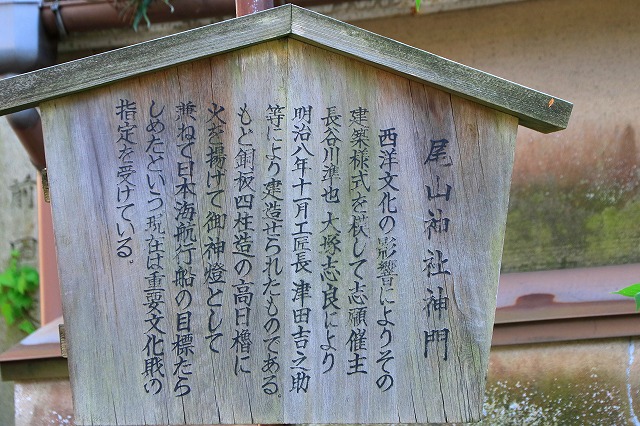 尾山神社神門
西洋文化の影響によりその
建築様式を模して志願催主
長谷川準也 大塚志良により
明治八年十一月工匠長 津田吉之助
等により建造せられたものである
もと銅板四柱造の高日櫓に
火を揚げて御神燈として
兼ねて日本海航行船の目標たら
しめたという現在は重要文化財の
指定を受けている。